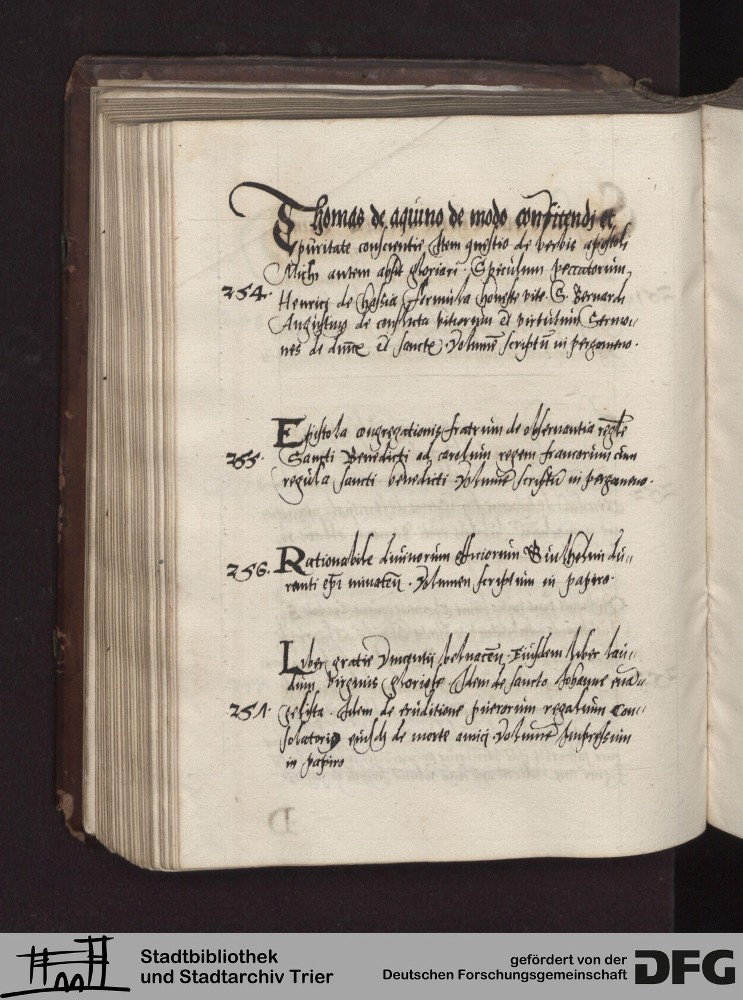 Thomas de aquino de modo confitendi et
puritate conscientie Item questio de verbis apostoli
Michi autem absit gloriari. Speculum peccatorum
254. Henrici de hassia formula honeste vite S. Bernardi
Augustinus de conflictu vitiorum et virtutum Sermo-
nes de dnice et sancte. Volume scriptu in pergameno.
Epistola congregationis fratrum de observantia regule
255. Sancti Benedicti ad carolum regem francorum cum
regula sancti benedicti Volume scriptu in pergameno.
256. Rationabile divinorum officiorum Guilhelmi du-
ranti epi mimaten. Volumen scriptum in papiro.
Liber gratie Vincentii belvacen. Eiusdem liber lau-
dum virginis gloriose. Idem de sancto Johanne eua-
251. gelista. Idem de eruditione puerorum regalium Con-
solatorio eiusde de morte amici Volume Impressum
in papiro
D
Stadtbibliothek
und Stadtarchiv Trier
gefördert von der
Deutschen Forschungsgemeinschaft
DFG